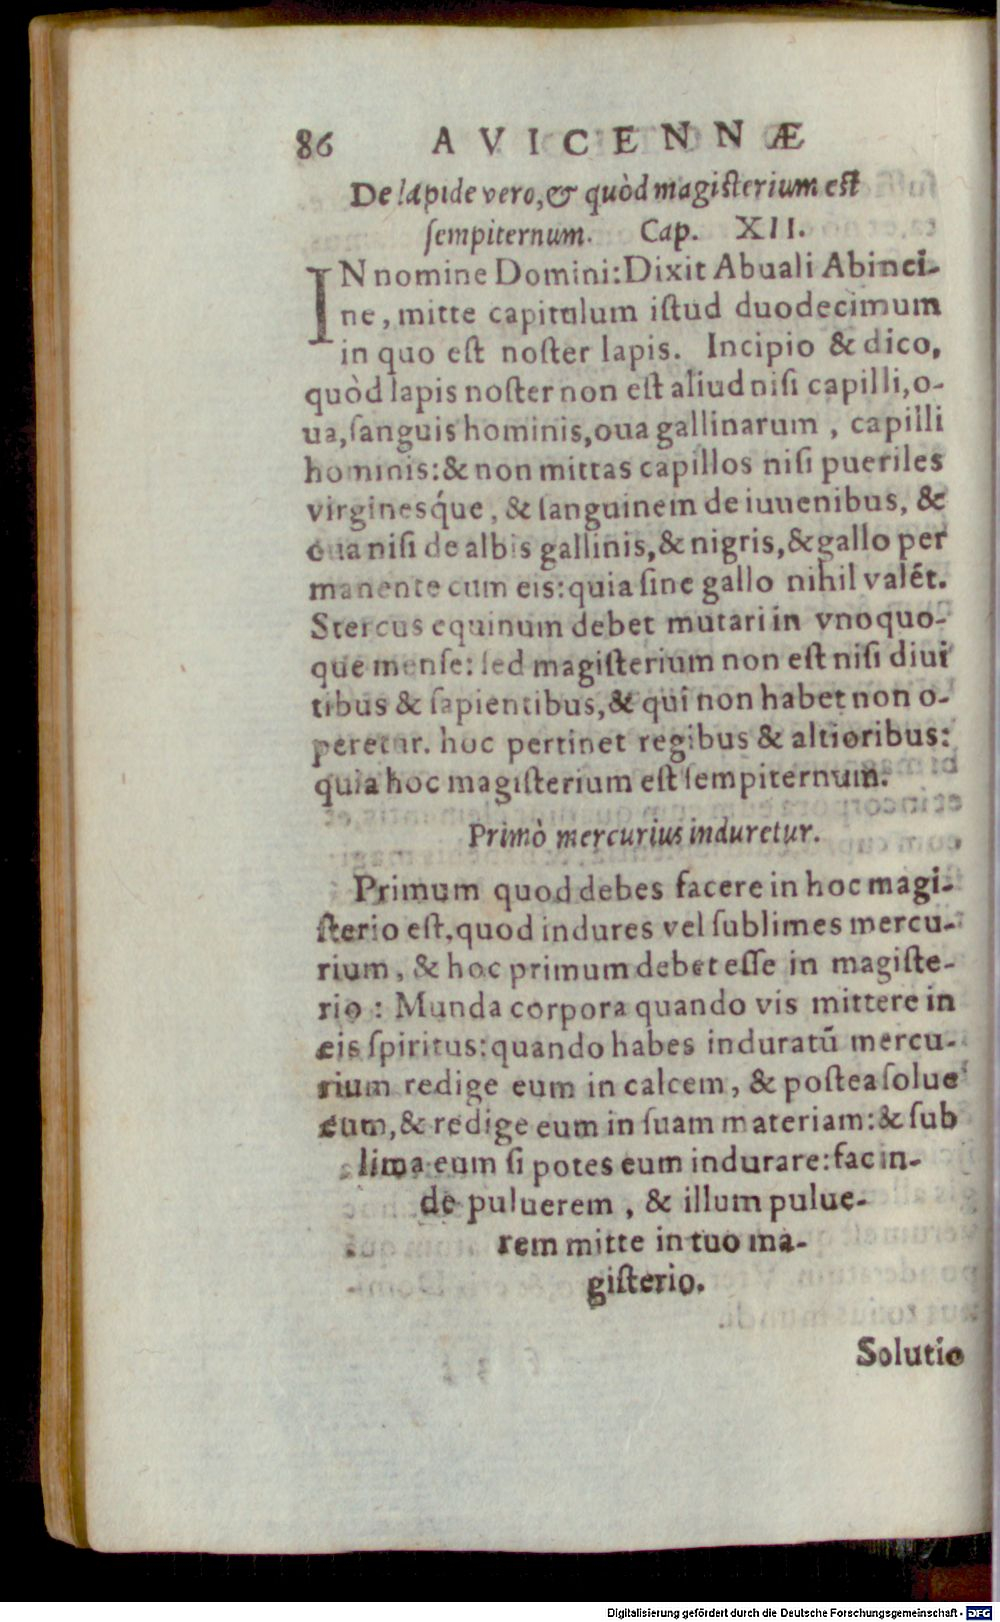 86 AVICENNÆ
De lapide vero, & quòd magiſterium eſt
ſempiternum. Cap. XII.
IN nomine Domini: Dixit Abuali Abinci-
ne, mitte capitulum iſtud duodecimum
in quo eſt noſter lapis. Incipio & dico,
quòd lapis noſter non eſt aliud niſi capilli, o-
ua, ſanguis hominis, oua gallinarum, capilli
hominis: & non mittas capillos niſi pueriles
virgineſque, & ſanguinem de iuuenibus, &
oua niſi de albis gallinis, & nigris, & gallo per
manente cum eis: quia ſine gallo nihil valẽt.
Stercus equinum debet mutari in vnoquo-
que menſe: ſed magiſterium non eſt niſi diui
tibus & ſapientibus, & qui non habet non o-
peretur. hoc pertinet regibus & altioribus:
quia hoc magiſterium eſt ſempiternum.
Primò mercurius induretur.
Primum quod debes facere in hoc magi-
ſterio eſt, quod indures vel ſublimes mercu-
rium, & hoc primum debet eſſe in magiſte-
rio: Munda corpora quando vis mittere in
eis ſpiritus: quando habes induratũ mercu-
rium redige eum in calcem, & poſtea ſolue
eum, & redige eum in ſuam materiam: & ſub
lima eum ſi potes eum indurare: fac in-
de puluerem, & illum pulue-
rem mitte in tuo ma-
giſterio.
Solutio
Digitalisierung gefördert durch die Deutsche Forschungsgemeinschaft - DFG